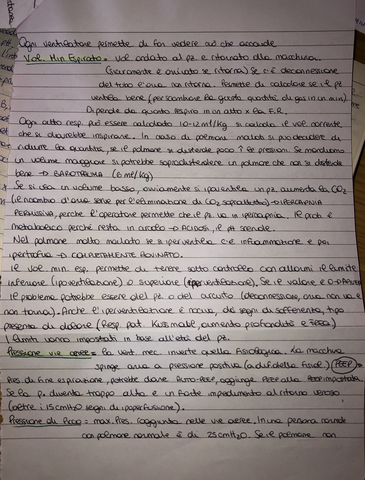 Ogni ventilatore permette di far vedere ciò che accade
Vol. Min Espirato = vol andato al pz. e ritornato alla macchina.
Chiaramente è ovvio se ritorna) Se c'è deconnessione
del tubo l'aria non ritorna. Permette di calcolare se il pz
ventila bene (per scambiare la giusta quantità di gas in un min).
Dipende da quanto espira in un atto x la F.R.
Ogni atto resp. può essere calcolato 10-12 ml/kg si calcola il vol corrente
che si dovrebbe inspirare. In caso di polmoni malati si può decidere di
ridurre la quantità, se il polmone si distende poco ? le pressioni. Se mandiamo
un volume maggiore si potrebbe sovradistendere un polmone che non si distende
bene → BAROTRAUMA (6 ml/kg)
Se si usa un volume basso, ovviamente si ipoventila un pz. aumenta la CO2
(il ricambio d'aria serve per l'eliminazione di CO2 soprattutto) → IPERCAPNIA
PERMISSIVA, perché l'operatore permette che il pz. va in ipercapnia. Il prob è
metabolico perché resta in circolo → ACIDOSI, il pH scende.
Nel polmone molto malato se si iperventila c'è infiammazione e poi
ipertrofia → COMPLETAMENTE ROVINATO.
Il vol. min. esp. permette di tenere sotto controllo con allarmi il limite
inferiore (ipoventilazione) o superiore (iperventilazione). Se il valore è
il problema potrebbe essere del pz. o del circuito (deconnessione, aria non va e
non torna). Anche l'iperventilazione è nociva, dei segni di sofferenza, tipo
presenta di dolore (Resp. pat. Kussmaul, aumenta profondità e freq.)
I limiti vanno impostati in base all'età del pz.
Pressione vie aeree = la vent. mec. inverte quella fisiologica. La macchina
spinge aria a pressione positiva (a diff. della fisiol.) PEEP
Pres. di fine espirazione, potrebbe dare AUTO-PEEP, aggiunge PEEP alla PEEP impostata.
Se la p. diventa troppo alta è un forte impedimento al ritorno venoso
(oltre i 15 cmH2O segni di ipoperfusione).
Pressione di Picco = max. Pres. raggiunta nelle vie aeree. In una persona normale
con polmone normale è di 25 cmH2O. Se il polmone non